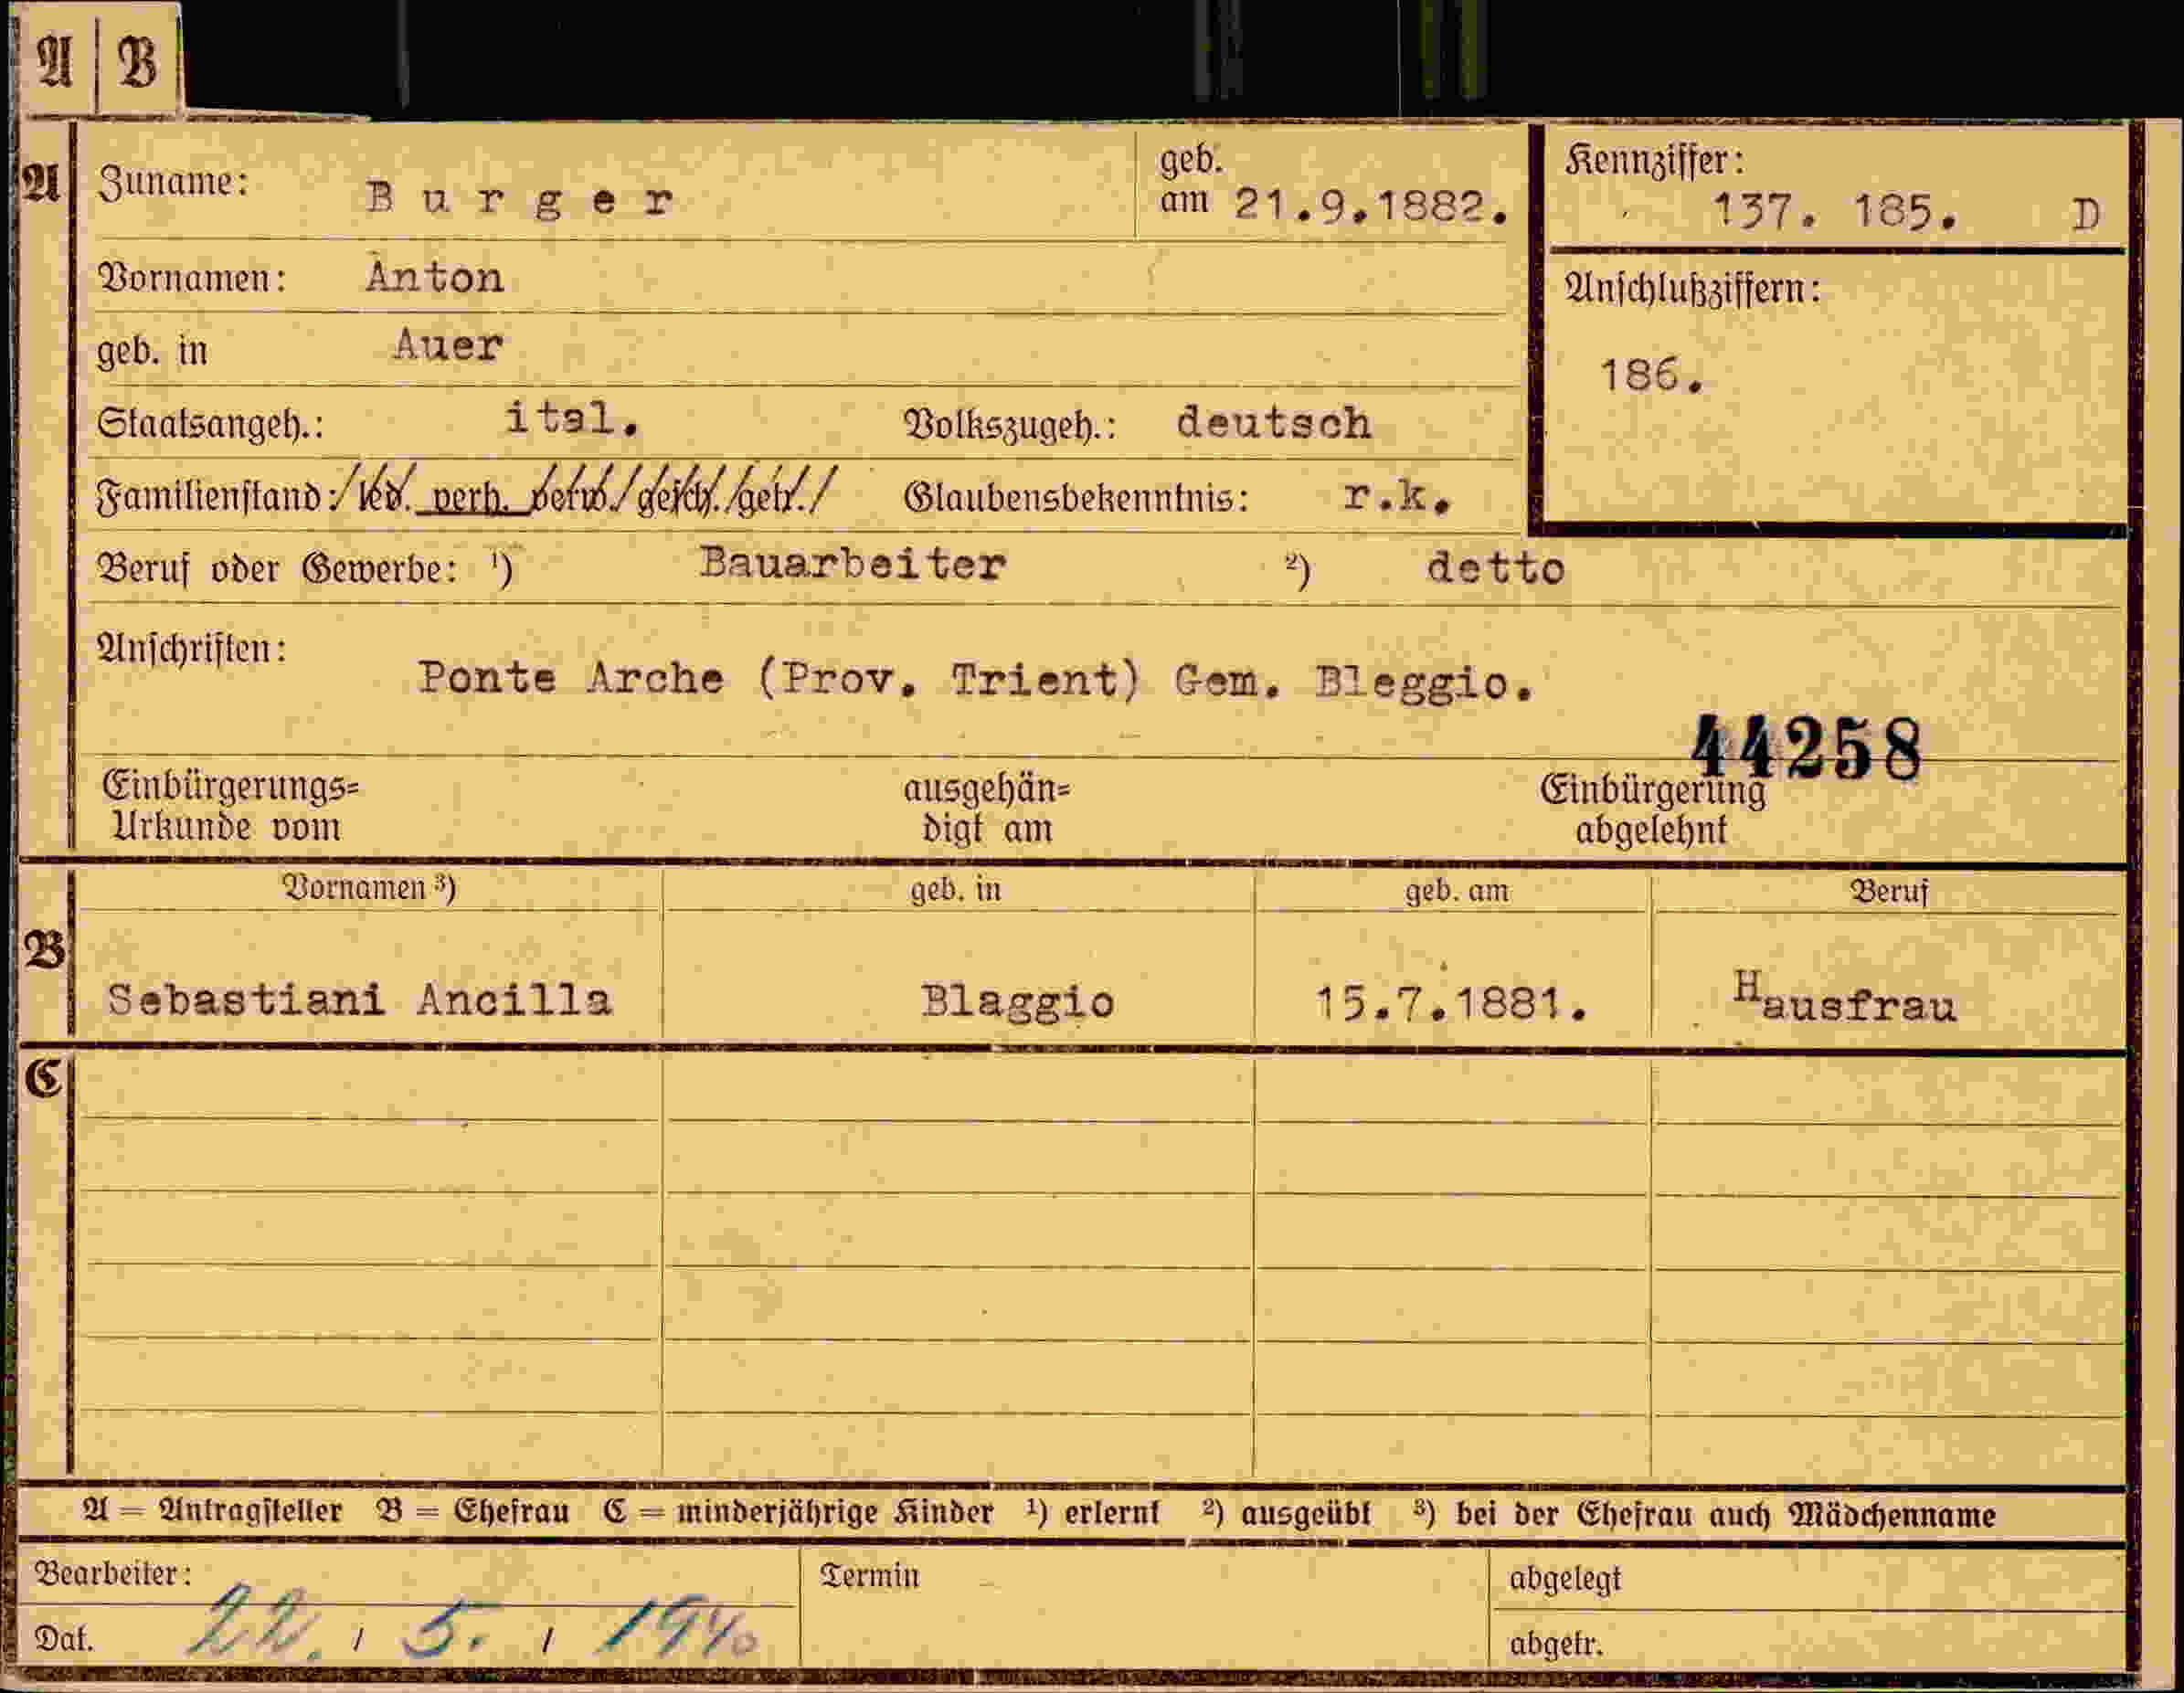 A | B
A Zuname: Burger geb. am 21.9.1882. Kennziffer: 137. 185. D
Vornamen: Anton
Anschlußziffern:
geb. in Auer
186.
Staatsangeh.: ital. Volkszugeh.: deutsch
Familienstand: led. verh. verw. gesch. getr. Glaubensbekenntnis: r.k.
Beruf oder Gewerbe: ¹) Bauarbeiter ²) detto
Anschriften:
Ponte Arche (Prov. Trient) Gem. Bleggio.
44258
Einbürgerungs= ausgehän= Einbürgerung
Urkunde vom digt am abgelehnt
Vornamen ³) geb. in geb. am Beruf
B
Sebastiani Ancilla Blaggio 15.7.1881. Hausfrau
C
A = Antragsteller B = Ehefrau C = minderjährige Kinder ¹) erlernt ²) ausgeübt ³) bei der Ehefrau auch Mädchenname
Bearbeiter: Termin abgelegt
Dat. 22. / 5. / 1940 abgetr.